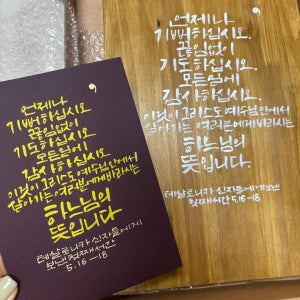 언제나
기뻐하십시오.
끊임없이
기도하십시오.
모든일에
감사하십시오.
이것이 그리스도 예수님 안에서
살아가는 여러분에게 바라시는
하느님의
뜻입니다.
테살로니카 신자들에게
보낸 첫째 서간
5.16-18
언제나
기뻐하십시오.
끊임없이
기도하십시오.
모든일에
감사하십시오.
이것이 그리스도 예수님 안에서
살아가는 여러분에게 바라시는
하느님의
뜻입니다.
테살로니카 신자들에게 보낸
첫째 서간 5.16-18